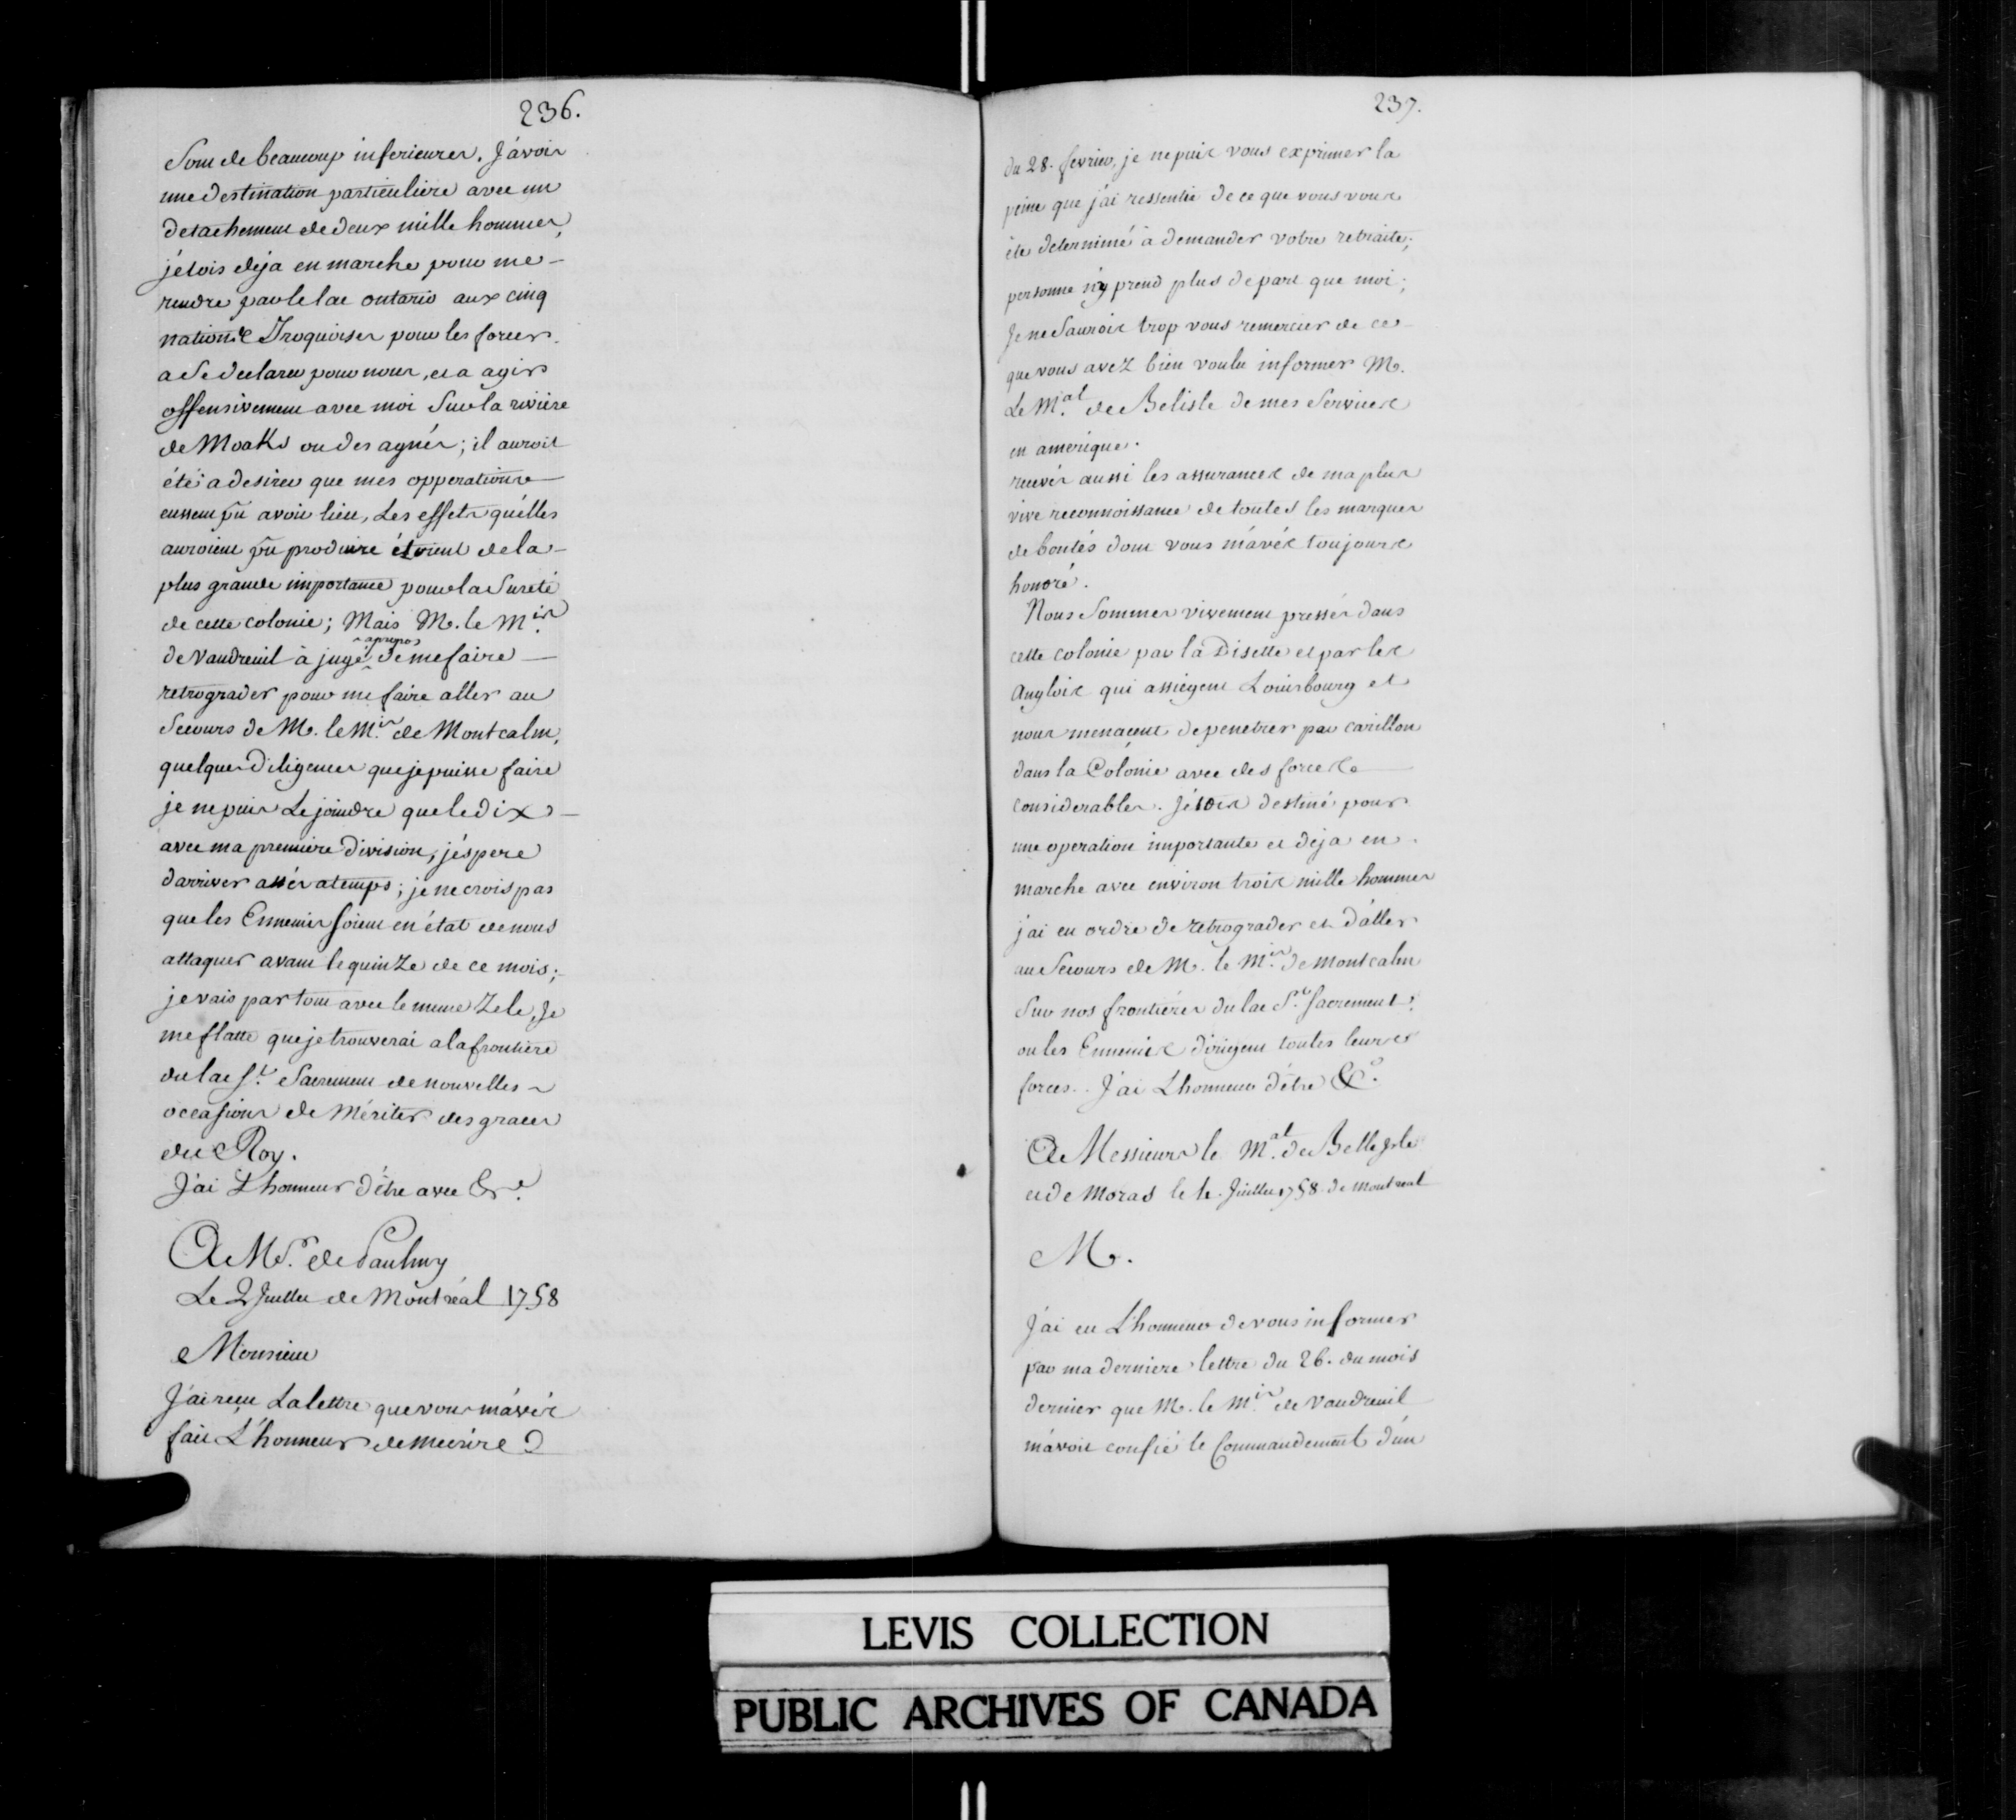 236.
Sont de beaucoup inferieures. J'avois
une destination particuliere avec un
detachement de deux mille hommes,
j'etois deja en marche pour me
rendre par le lac ontario aux cinq
nations Iroquoises pour les forcer
a Se declarer pour nous, et a agir
offensivement avec moi Sur la riviere
de Moaks ou des agnés; il auroit
été a desirer que mes opperations
eussent pû avoir lieu, Les effets qu'elles
auroient pû produire étoient de la
plus grande importance pour la Sureté
de cette colonie; Mais M. le M.is
de Vaudreuil à jugé apropos de me faire
retrograder pour me faire aller au
Secours de M. le M.is de Montcalm,
quelques Diligences que je puisse faire
je ne puis Le joindre que le dix
avec ma premiere Division, j'éspere
d'arriver assés atemps; je ne crois pas
que les Ennemis soient en état de nous
attaquer avant le quinze de ce mois;
je vais partout avec le meme Zele, Je
me flatte que je trouverai a la frontiere
du lac S.t Sacrement de nouvelles
occasions de Mériter des graces
du Roy.
J'ai L'honneur d'être avec &c.
A Mr. de Paulmy
Le 2 Juillet de Montréal 1758
Monsieur
J'ai reçu La lettre que vous m'avés
fait L'honneur de mecrire
237.
du 28. fevrier, je ne puis vous exprimer la
peine que j'ai ressentie de ce que vous vous
ête determiné à demander votre retraite;
personne n'y prend plus de part que moi;
Je ne Saurois trop vous remercier de ce
que vous avez bien voulu informer M.
Le M.al de Belisle de mes Services
en amerique.
recevés aussi les assurances de ma plus
vive reconnoissance de toutes les marques
de bontés dont vous m'avés toujours
honoré.
Nous Sommes vivement pressés dans
cette colonie par la Disette et par les
Anglois qui assiegent Louisbourg et
nous menacent de penetrer par carillon
dans la Colonie avec des forces
considerables. J'étois destiné pour
une operation importante et deja en
marche avec environ trois mille hommes
j'ai eu ordre de retrograder et d'aller
au Secours de M. le M.is de Montcalm
Sur nos frontieres du lac S.t Sacrement,
ou les Ennemis dirigent toutes leurs
forces. J'ai L'honneur d'être &c.
A Messieurs le M.al de Belle Isle
et de Moras le Juillet 1758 de Montreal
M.
J'ai eu L'honneur de vous informer
par ma derniere lettre du 26. du mois
dernier que M. le M.is de Vaudreuil
m'avoit confié le Commandement d'un
LEVIS COLLECTION
PUBLIC ARCHIVES OF CANADA